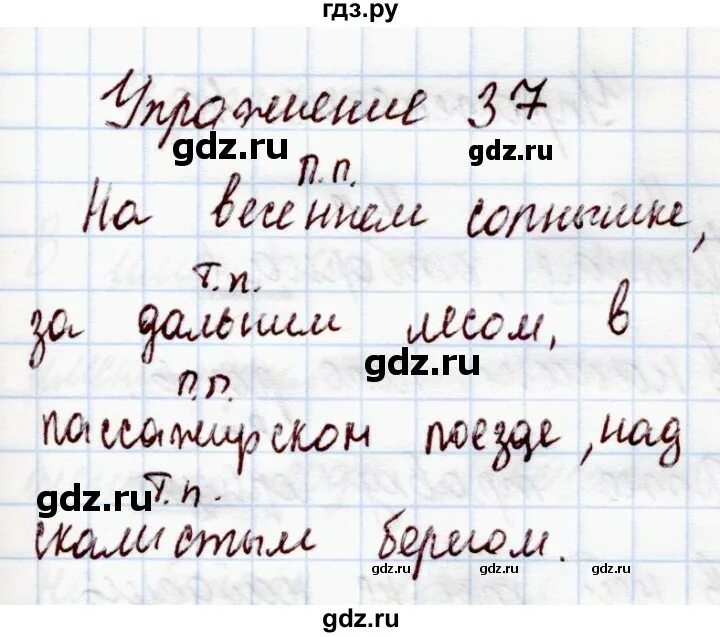 гдз.ру
Упражнение 37
gdz.ru
gdz.ru
п.п.
На весеннем солнышке,
т.п.
за дальним лесом, в
gdz.ru
п.п.
пассажирском поезде, над
gdz.ru
т.п.
скалистым берегом.
gdz.ru
gdz.ru
gdz.ru
gdz.ru